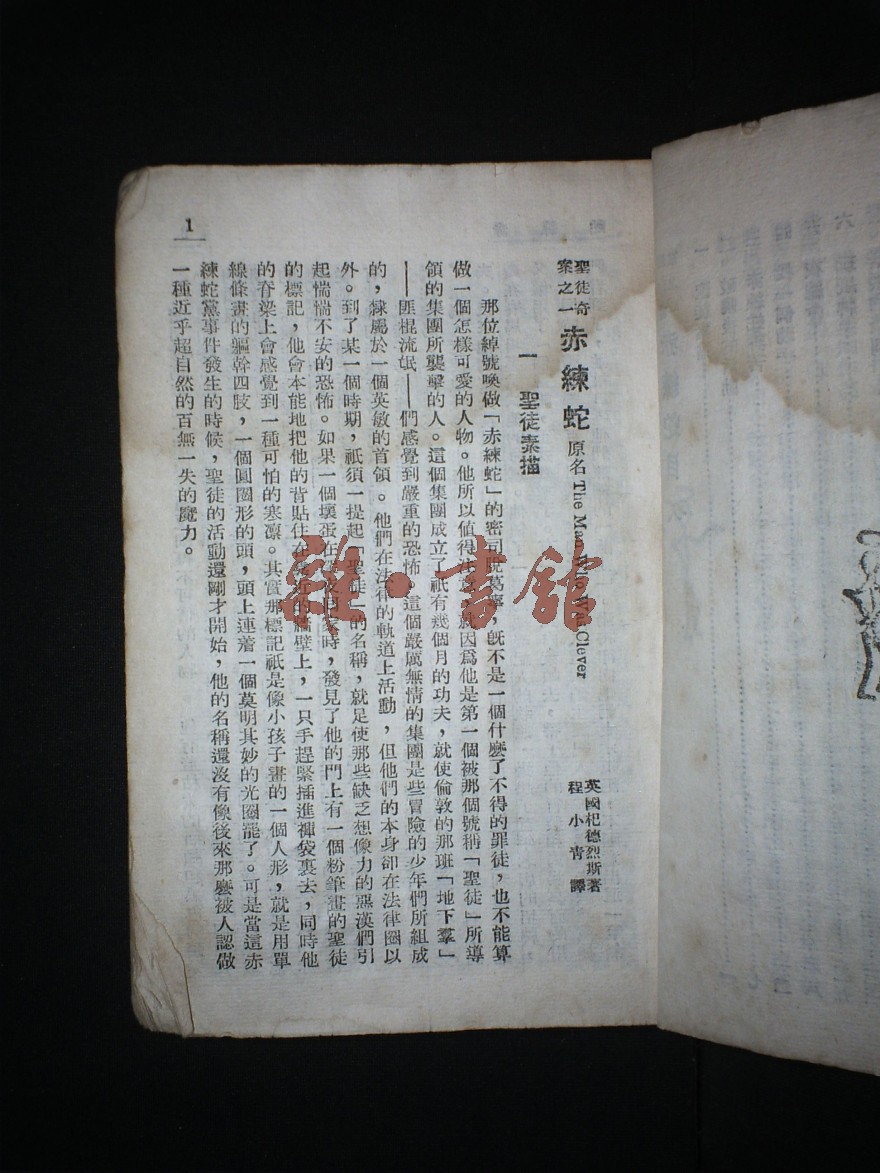 1
聖徒奇案之一 赤練蛇 原名 The Man Who Was Clever
英國杞德烈斯著
程小青譯
一 聖徒素描
那位綽號喚做「赤練蛇」的密司脫葛寧,既不是一個什麼了不得的罪徒,也不能算
做一個怎樣可愛的人物。他所以值得 就因爲他是第一個被那個號稱「聖徒」所導
領的集團所襲擊的人。這個集團成立了祇有幾個月的功夫,就使倫敦的那班「地下羣」
——匪棍流氓——們感覺到嚴重的恐怖。這個嚴厲無情的集團是些冒險的少年們所組成
的,隸屬於一個英敏的首領。他們在法律的軌道上活動,但他們的本身卻在法律圈以
外。到了某一個時期,祇須一提起「聖徒」的名稱,就足使那些缺乏想像力的惡漢們引
起惴惴不安的恐怖。如果一個壞蛋在 回家時,發見了他的門上有一個粉筆畫的聖徒
的標記,他會本能地把他的背貼住在 近的牆壁上,一只手趕緊插進褲袋裏去,同時他
的脊梁上會感覺到一種可怕的寒凛。其實那標記祇是像小孩子畫的一個人形,就是用單
線條畫的軀幹四肢,一個圓圈形的頭,頭上連着一個莫明其妙的光圈罷了。可是當這赤
練蛇黨事件發生的時候,聖徒的活動還剛才開始,他的名稱還沒有像後來那麼被人認做
一種近乎超自然的百無一失的魔力。
雜·書館